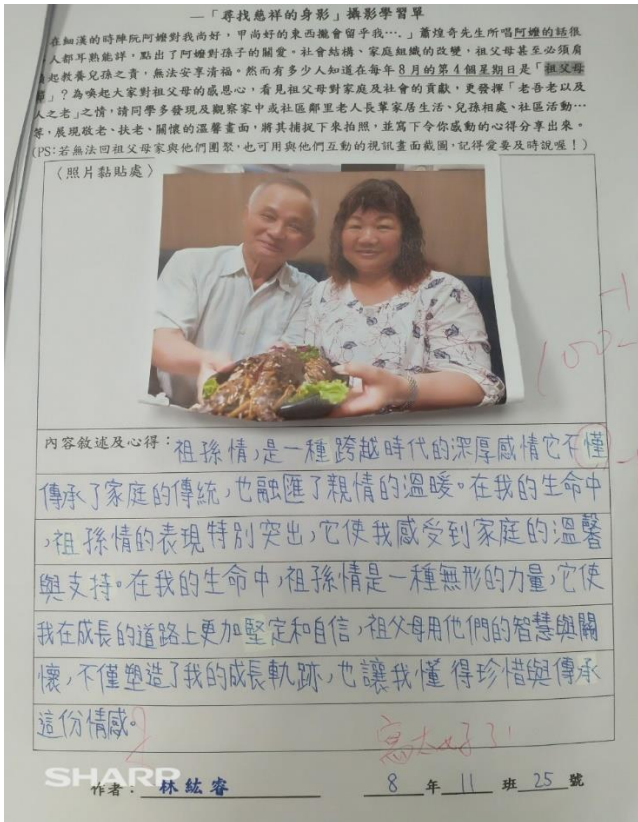 —「尋找慈祥的身影」攝影學習單
在細漢的時陣阮阿嬤對我尚好,甲尚好的東西攏會留乎我…」蕭煌奇先生所唱阿嬤的話很
人都耳熟能詳,點出了阿嬤對孫子的關愛。社會結構、家庭組織的改變,祖父母甚至必須肩
起教養兒孫之責,無法安享清福。然而有多少人知道在每年8月的第4個星期日是「祖父母
」?為喚起大家對祖父母的感恩心,看見祖父母對家庭及社會的貢獻,更發揮「老吾老以及
人之老」之情,請同學多發現及觀察家中或社區鄰里老人長輩家居生活、兒孫相處、社區活動…
等,展現敬老、扶老、關懷的溫馨畫面,將其捕捉下來拍照,並寫下令你感動的心得分享出來。
(PS:若無法回祖父母家與他們團聚,也可用與他們互動的視訊畫面截圖,記得愛要及時說喔!)
〈照片黏貼處〉
-1
100-
內容敘述及心得:祖孫情,是一種跨越時代的深厚感情它不懂
傳承了家庭的傳統,也融匯了親情的溫暖。在我的生命中
,祖孫情的表現特別突出,它使我感受到家庭的溫馨
與支持。在我的生命中,祖孫情是一種無形的力量,它使
我在成長的道路上更加堅定和自信,祖父母用他們的智慧與關
懷,不僅塑造了我的成長軌跡,也讓我懂得珍惜與傳承
這份情感。
寫太好了!
SHARP
作者: 林紘睿 8 年 11 班 25 號